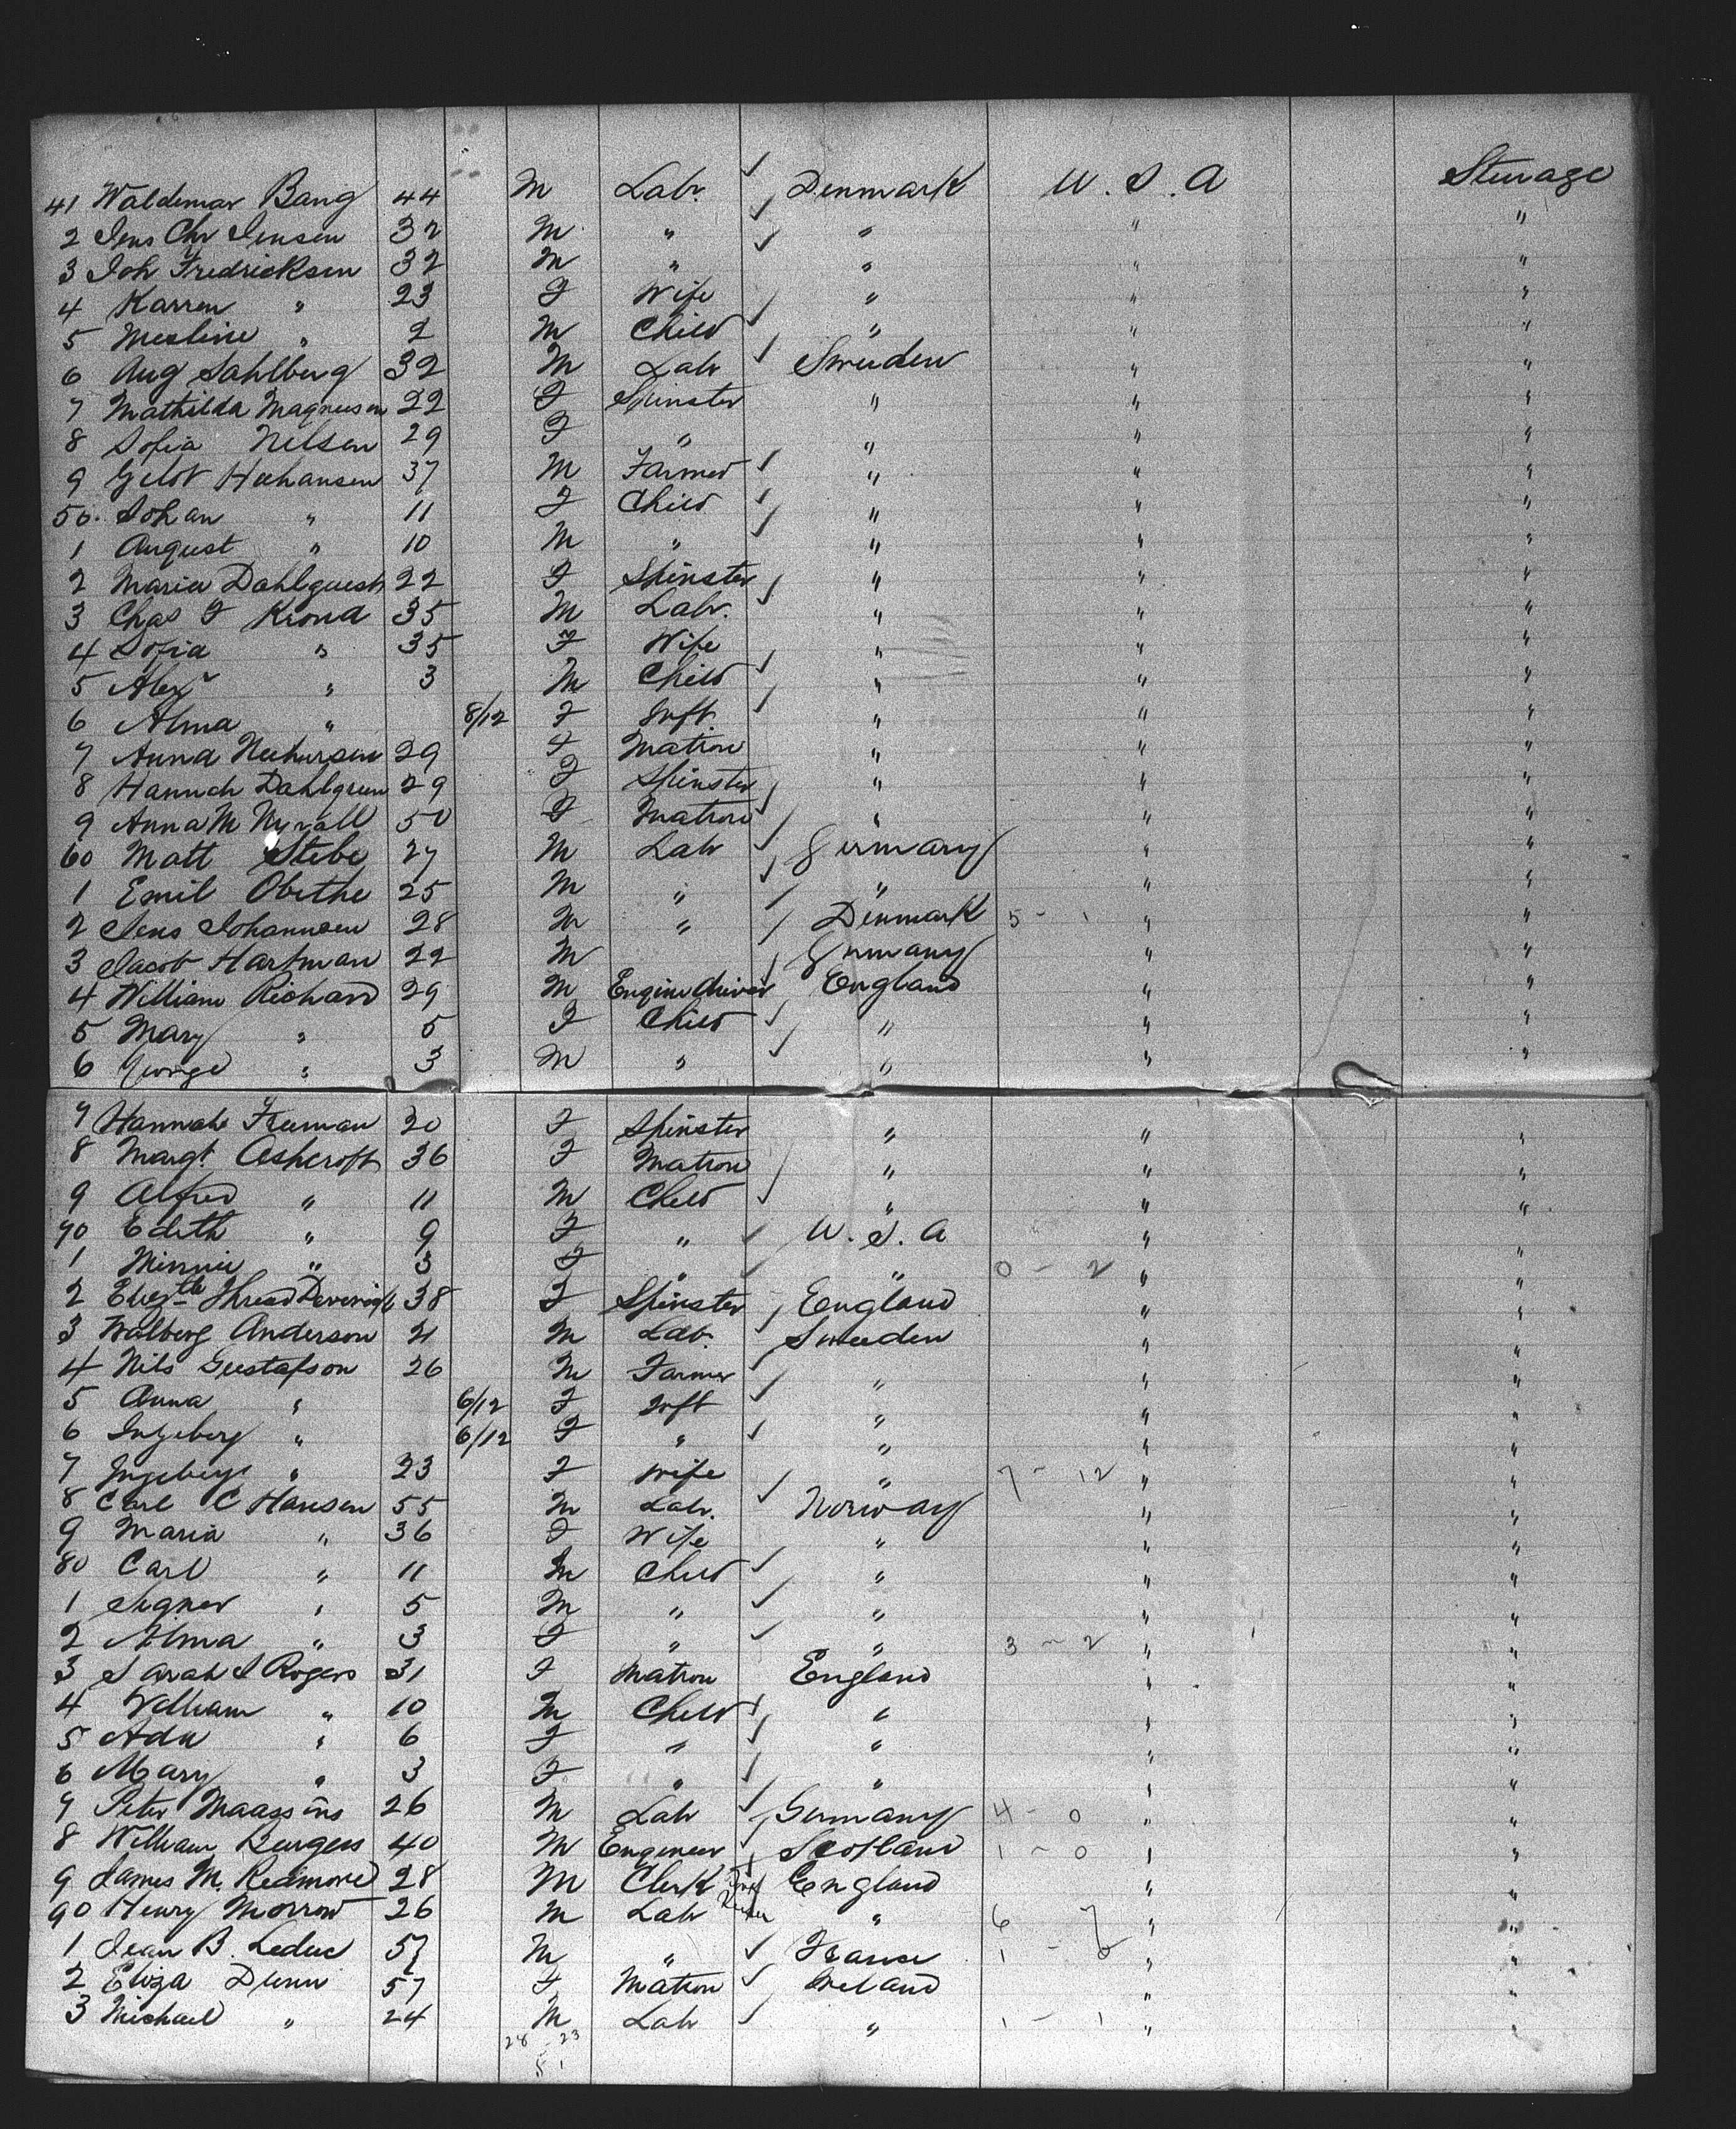 41 Waldemar Bang 44 M Labr. Denmark U. S. A Steerage
2 Jens Chr Jensen 32 M " " " "
3 Joh Fredricksen 32 M " " " "
4 Karren " 23 F Wife " " "
5 " 2 M Child " " "
6 Aug Sahlberg 32 M Labr Sweeden " "
7 Mathilda Magneusen 22 F Spinster " " "
8 Sofia Nelsen 29 F " " " "
9 37 M Farmer " " "
50. Johan " 11 F Child " " "
1 August " 10 M " " " "
2 Maria Dahlquest 22 F Spinster " " "
3 Chas F 35 M Labr. " " "
4 Sofia " 35 F Wife " " "
5 Alexr " 3 M Child " " "
6 Alma " 8/12 F Inft " " "
7 Anna 29 F Matron " " "
8 Hannah Dahlgreen 29 F Spinster " " "
9 Anna M 50 F Matron " " "
60 Matt Stebe 27 M Labr Germany " "
1 Emil Obethe 25 M " " " "
2 Jens Johannsen 28 M " Denmark 5 - 1 " "
3 Jacob Hartman 22 M Germany " "
4 William Richard 29 M Engine driver England " "
5 Mary " 5 F Child " " "
6 George " 3 M " " " "
7 Hannah Freeman 20 F Spinster " " "
8 Margt. Ashcroft 36 F Matron " " "
9 Alfred " 11 M Child " " "
70 Edith " 9 F " U. S. A " "
1 Minnie " 3 F " " 0 - 2 " "
2 Elizth 38 F Spinster England " "
3 Walberg Anderson 21 M Labr. Sweeden " "
4 Nils Gustafson 26 M Farmer " " "
5 Anna " 6/12 F Inft " " "
6 Ingeberg " 6/12 F " " " "
7 Ingeberg " 23 F Wife " 7 - 12 " "
8 Carl C Hansen 55 M Labr. Norway " "
9 Maria " 36 F Wife " " "
80 Carl " 11 M Child " " "
1 Signer " 5 M " " " "
2 Alma " 3 F " " 3 - 2 " "
3 Sarah S Rogers 31 F Matron England " "
4 William " 10 M Child " " "
5 Ada " 6 F " " " "
6 Mary " 3 F " " " "
7 Peter Maassens 26 M Labr Germany 4 - 0 " "
8 William Burgess 40 M Engineer Scotland 1 - 0 " "
9 James M. Redmore 28 M Clerk England " "
90 Henry Morrow 26 M Labr " 6 7 " "
1 Jean B. Leduc 57 M " France 1 - 0 " "
2 Eliza Dunn 57 F Matron Ireland " "
3 Michael " 24 M Labr " 1 - 1 " "
28 - 23
51